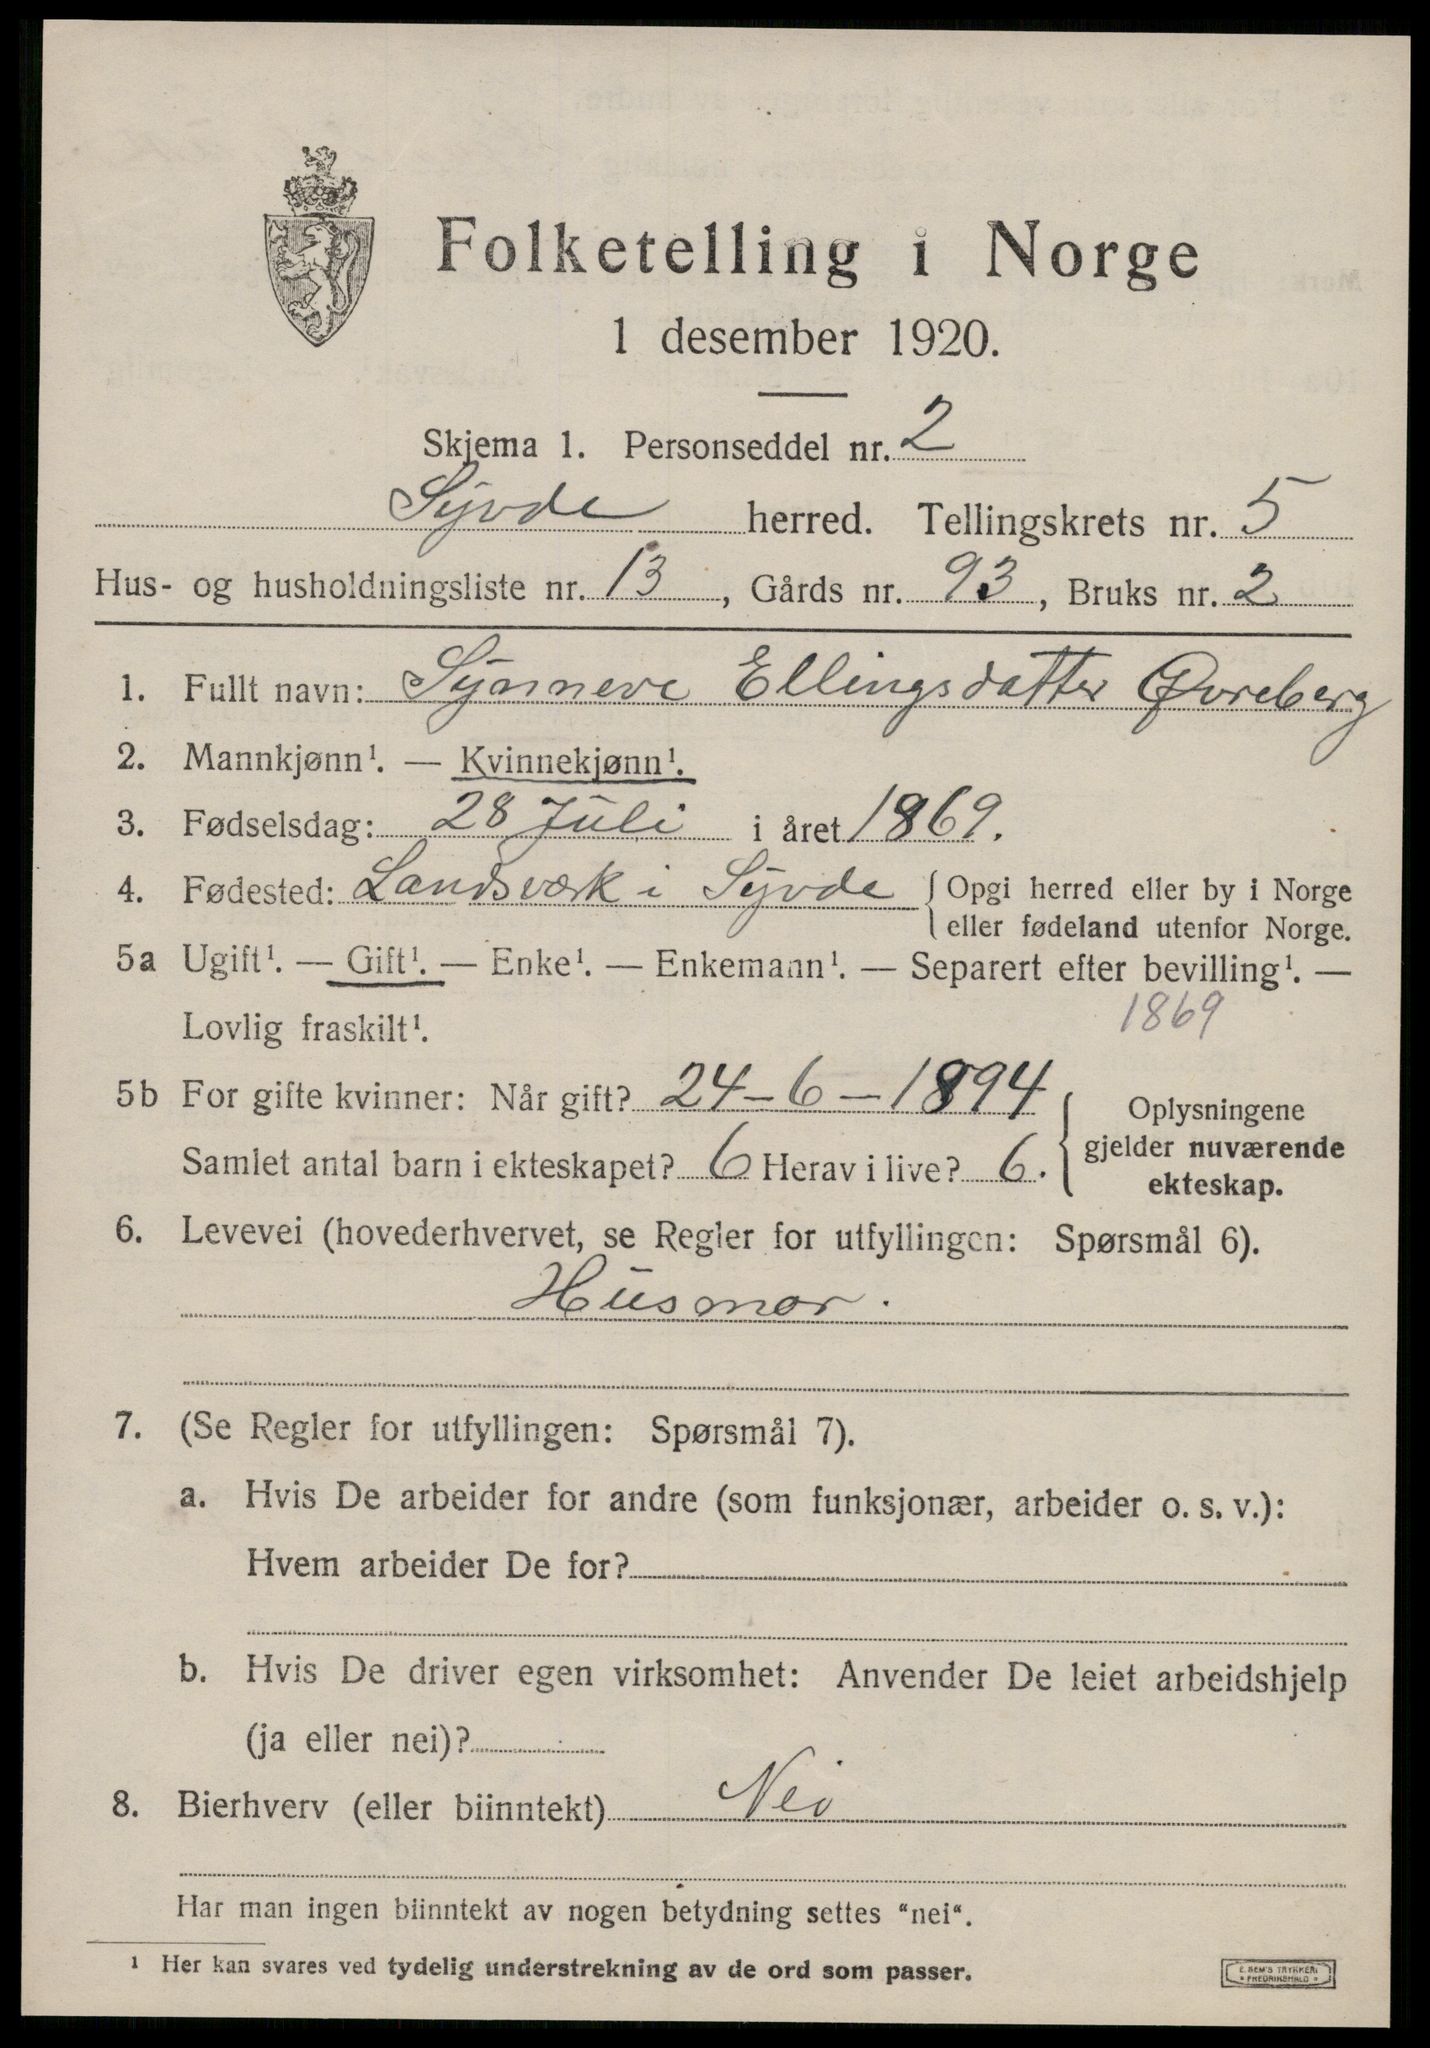 Folketelling i Norge
1 desember 1920.
Skjema 1. Personseddel nr. 2
Syvde herred. Tellingskrets nr. 5
Hus- og husholdningsliste nr. 13, Gårds nr. 93, Bruks nr. 2
1. Fullt navn: Synneve Ellingsdatter Øvreberg
2. Mannkjønn¹. — Kvinnekjønn¹.
3. Fødselsdag: 28 Juli i året 1869.
4. Fødested: Landsværk i Syvde { Opgi herred eller by i Norge
eller fødeland utenfor Norge.
5a Ugift¹. — Gift¹. — Enke¹. — Enkemann¹. — Separert efter bevilling¹. —
Lovlig fraskilt¹. 1869
5b For gifte kvinner: Når gift? 24-6-1894
Samlet antal barn i ekteskapet? 6 Herav i live? 6.
{ Oplysningene
gjelder nuværende
ekteskap.
6. Levevei (hovederhvervet, se Regler for utfyllingen: Spørsmål 6).
Husmor.
7. (Se Regler for utfyllingen: Spørsmål 7).
a. Hvis De arbeider for andre (som funksjonær, arbeider o. s. v.):
Hvem arbeider De for?
b. Hvis De driver egen virksomhet: Anvender De leiet arbeidshjelp
(ja eller nei)?
8. Bierhverv (eller biinntekt) Nei
Har man ingen biinntekt av nogen betydning settes "nei".
¹ Her kan svares ved tydelig understrekning av de ord som passer.
E. SEM'S TRYKKERI
* FREDRIKSHALD *